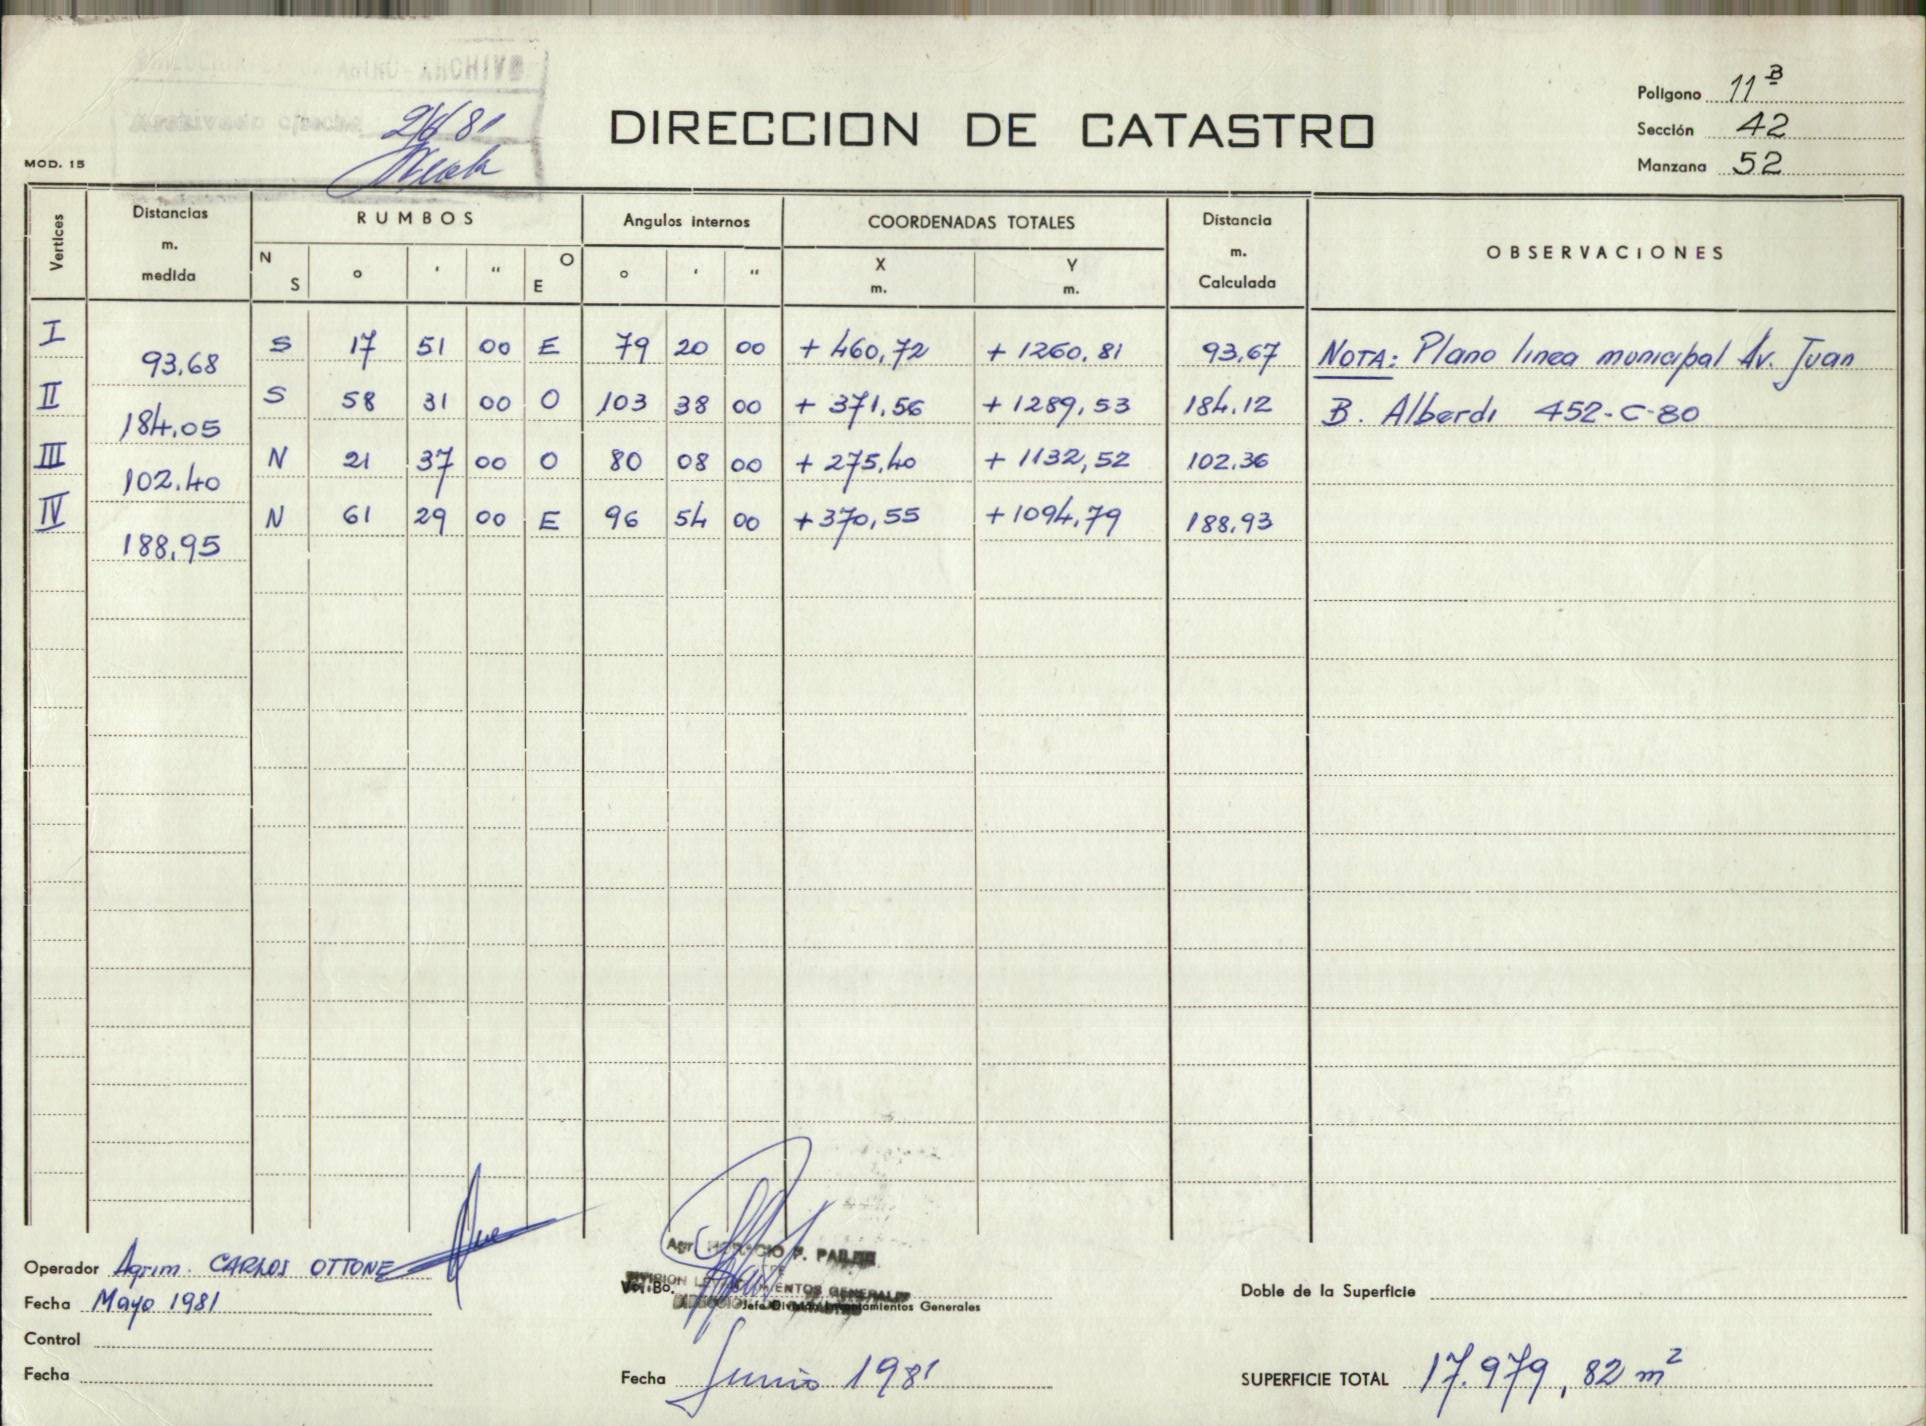 ARCHIVO
2/6/81
DIRECCION DE CATASTRO
Polígono 11 B
Sección 42
Manzana 52
MOD. 15
Vertices
Distancias m. medida
RUMBOS
Angulos internos
COORDENADAS TOTALES
Distancia m. Calculada
OBSERVACIONES
N S ° ' " O E
° ' "
X m. Y m.
I 93.68 S 17 51 00 E 79 20 00 + 460,72 + 1260,81 93.67 NOTA: Plano linea municipal Av. Juan
II 184.05 S 58 31 00 O 103 38 00 + 371,56 + 1289,53 184.12 B. Alberdi 452-C-80
III 102.40 N 21 37 00 O 80 08 00 + 275,40 + 1132,52 102.36
IV 188.95 N 61 29 00 E 96 54 00 + 370,55 + 1094,79 188.93
Operador Agrim. CARLOS OTTONE
Fecha Mayo 1981
Control
Fecha
Vo. Bo.
GENERALES
Jefe División Levantamientos Generales
Fecha Junio 1981
Doble de la Superficie
SUPERFICIE TOTAL 17.979,82 m²